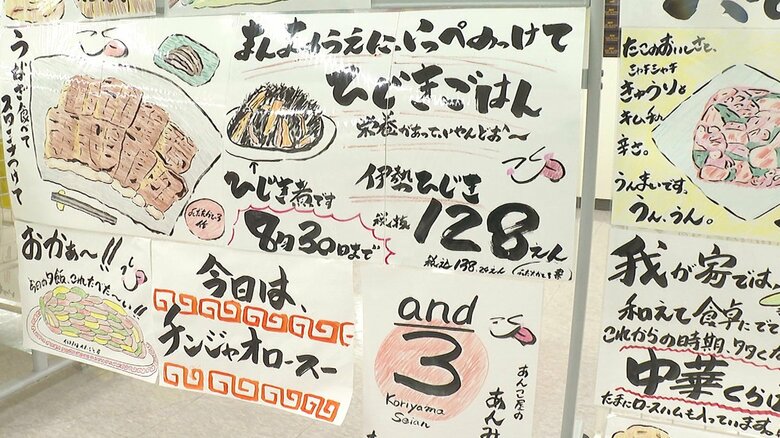 うなぎ食べて
スタミナつけて
まんまのうえに、いっぺのっけて
ひじきごはん
栄養があっていやんどお〜
ひじき煮です
8月30日まで
伊勢ひじき
税抜
128えん
税込138.24えん
おかぁ〜!!
今日は、
チンジャオロースー
and
3
Koriyama
Seian
あんこ屋の
あんみ
たこのおいしさと、
シャキシャキ
きゅうりと
キムチの
辛さ。
うんまいです。
うん、うん。
我が家では
和えて食卓にで
これからの時期、
中華くら
たまにロースハムも入っています。